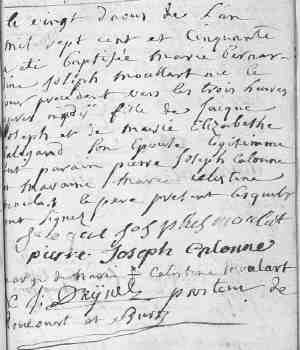 le vingt d'aous de Lan
mil sept cent et cinquante
eté baptisée marie bernar
ine joseph moullart née le
jour precedent vers les trois heures
apres midi fille de jacque
joseph et de marie Elizabethe
son epouse legitemme
parain pierre joseph Colonne
marainne marie celestine
moullart le pere present lesquels
ont signez
jacque josphe moulart
pierre Joseph Colonne
marque de marie + Celestine Moulart
pasteur de
et Bussy